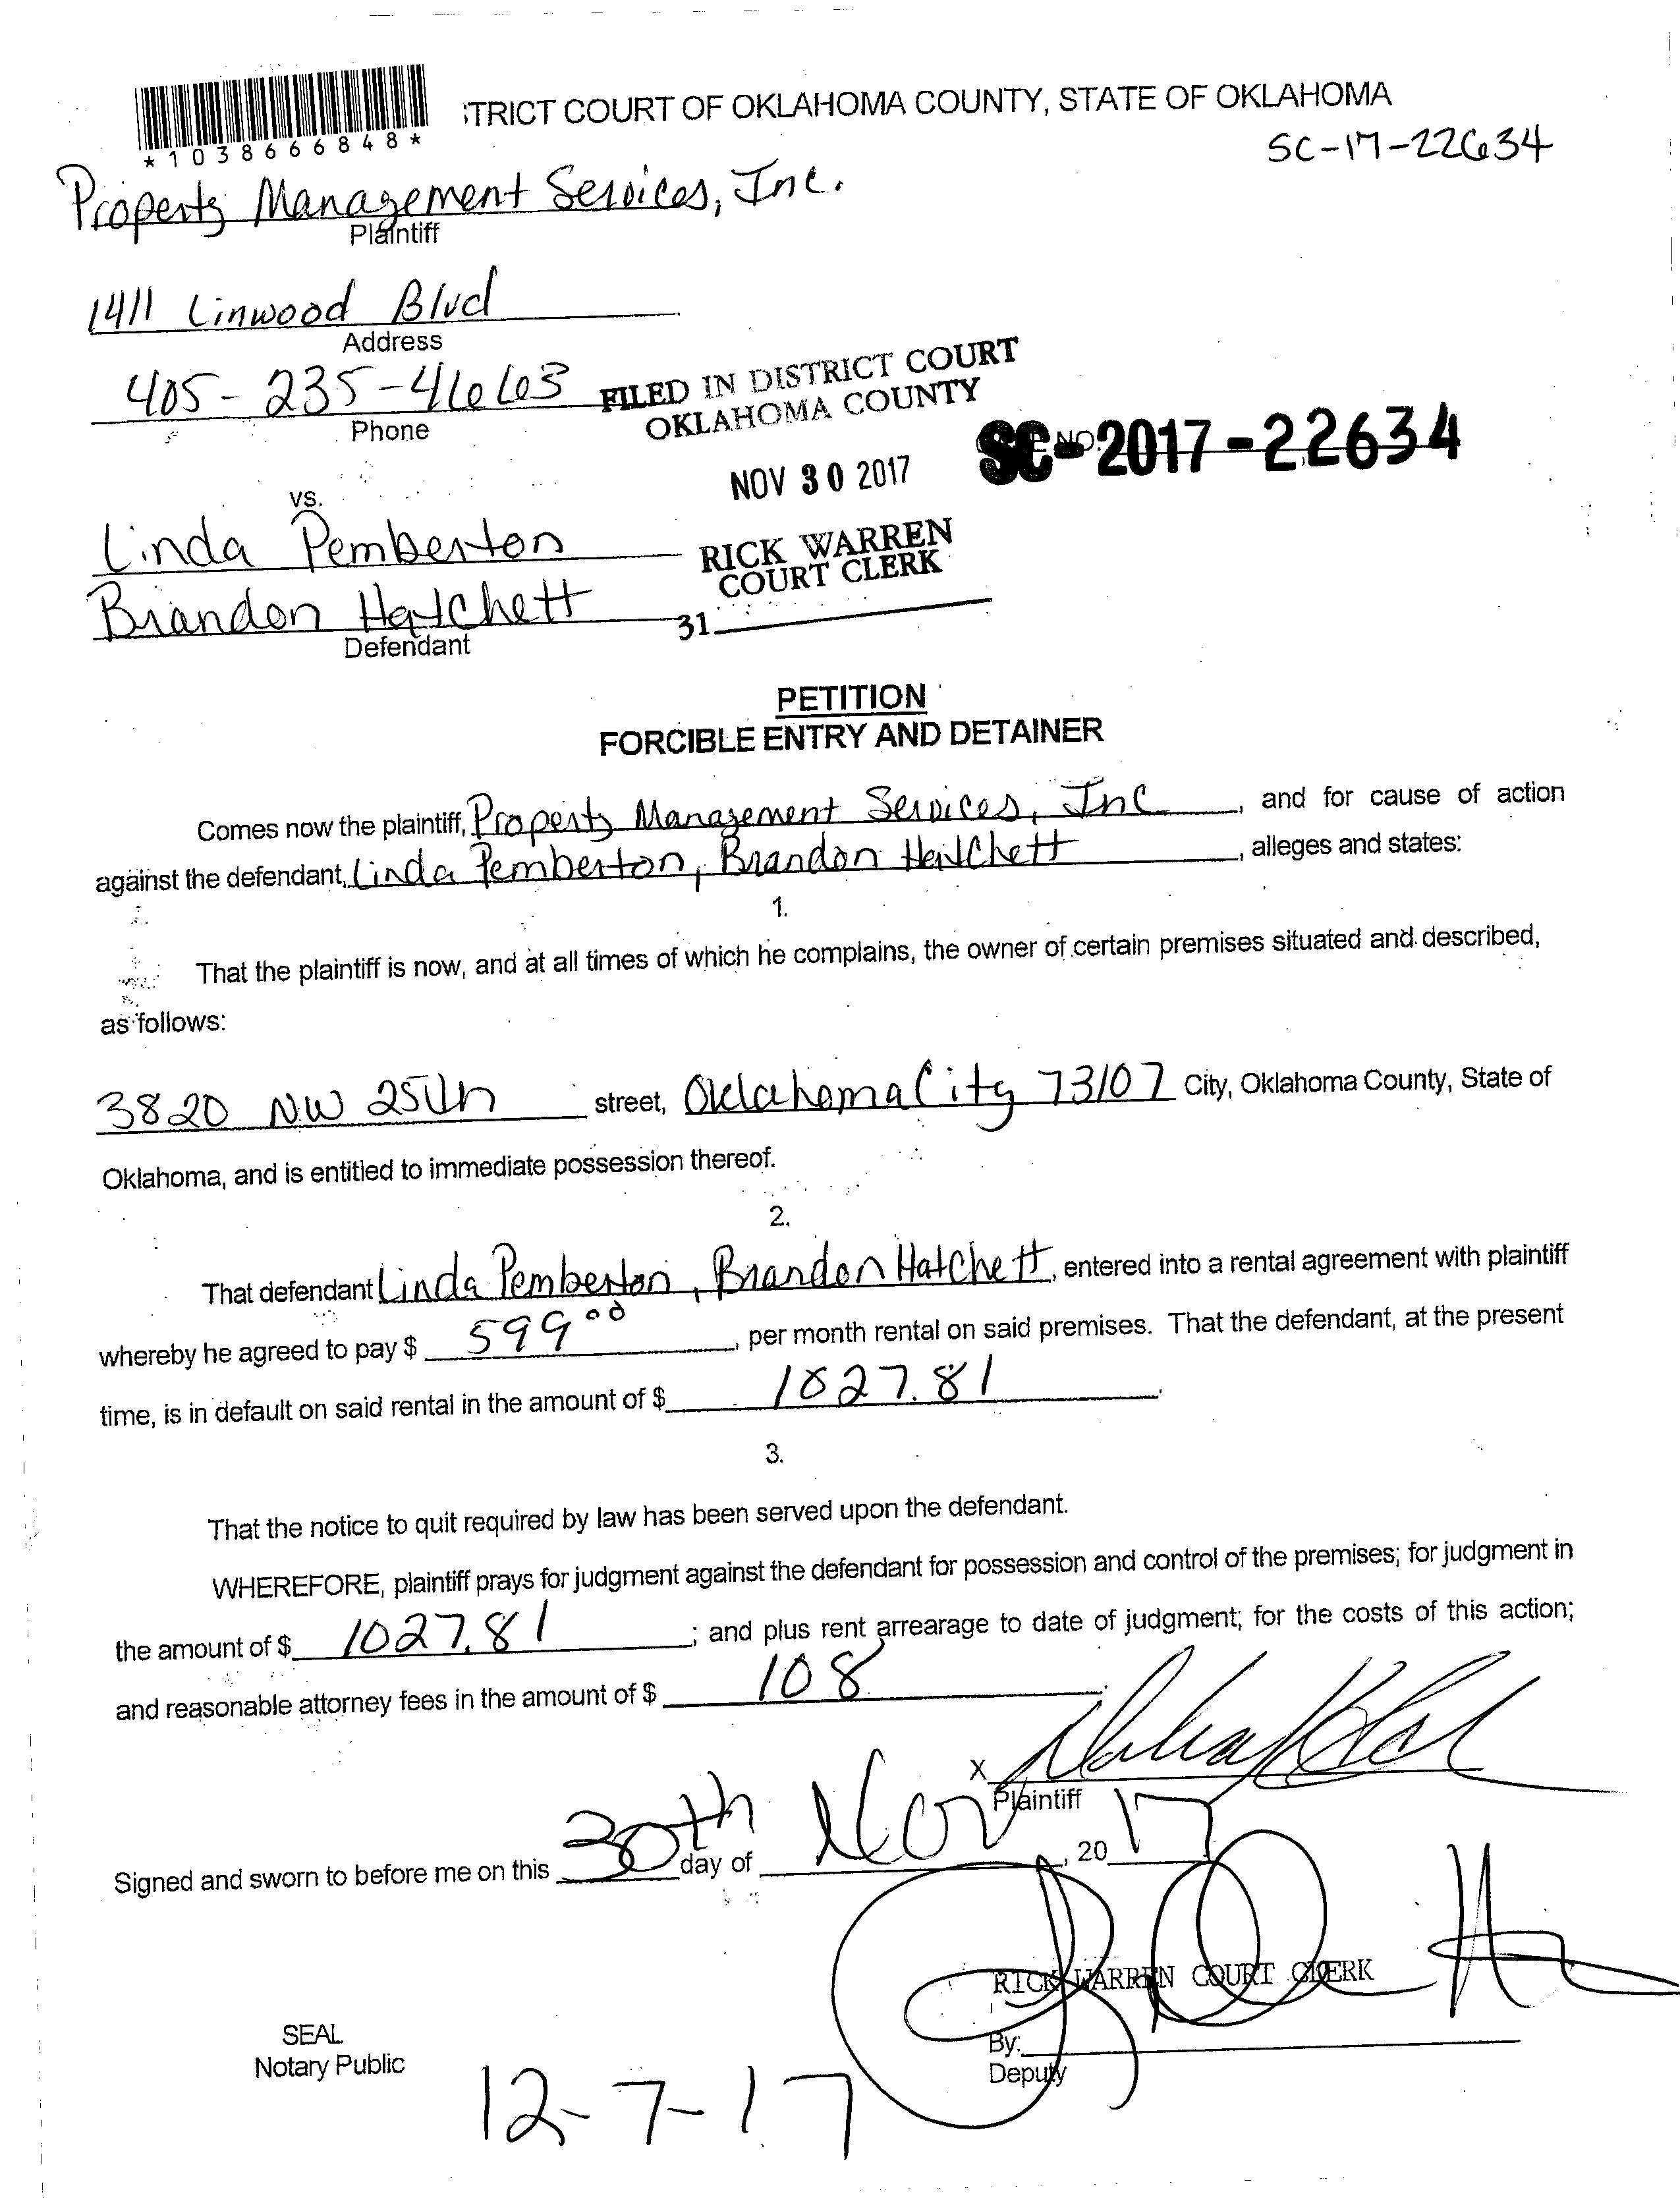 TRICT COURT OF OKLAHOMA COUNTY, STATE OF OKLAHOMA
*1038666848*
SC-17-22634
Property Management Services, Inc.
Plaintiff
1411 Linwood Blvd
Address
405-235-4663
Phone
FILED IN DISTRICT COURT
OKLAHOMA COUNTY
NOV 30 2017
NO. SC-2017-22634
RICK WARREN
COURT CLERK
31
vs.
Linda Pemberton
Brandon Hatchett
Defendant
PETITION
FORCIBLE ENTRY AND DETAINER
Comes now the plaintiff, Property Management Services, Inc, and for cause of action
against the defendant, Linda Pemberton, Brandon Hatchett, alleges and states:
1.
That the plaintiff is now, and at all times of which he complains, the owner of certain premises situated and described,
as follows:
3820 NW 25th street, Oklahoma City 73107 City, Oklahoma County, State of
Oklahoma, and is entitled to immediate possession thereof.
2.
That defendant Linda Pemberton, Brandon Hatchett, entered into a rental agreement with plaintiff
whereby he agreed to pay $ 599 00, per month rental on said premises. That the defendant, at the present
time, is in default on said rental in the amount of $ 1027.81.
3.
That the notice to quit required by law has been served upon the defendant.
WHEREFORE, plaintiff prays for judgment against the defendant for possession and control of the premises; for judgment in
the amount of $ 1027.81; and plus rent arrearage to date of judgment; for the costs of this action;
and reasonable attorney fees in the amount of $ 108.
X
Plaintiff
Signed and sworn to before me on this 30th day of Nov, 20 17
RICK WARREN COURT CLERK
By:
Deputy
SEAL
Notary Public
12-7-17